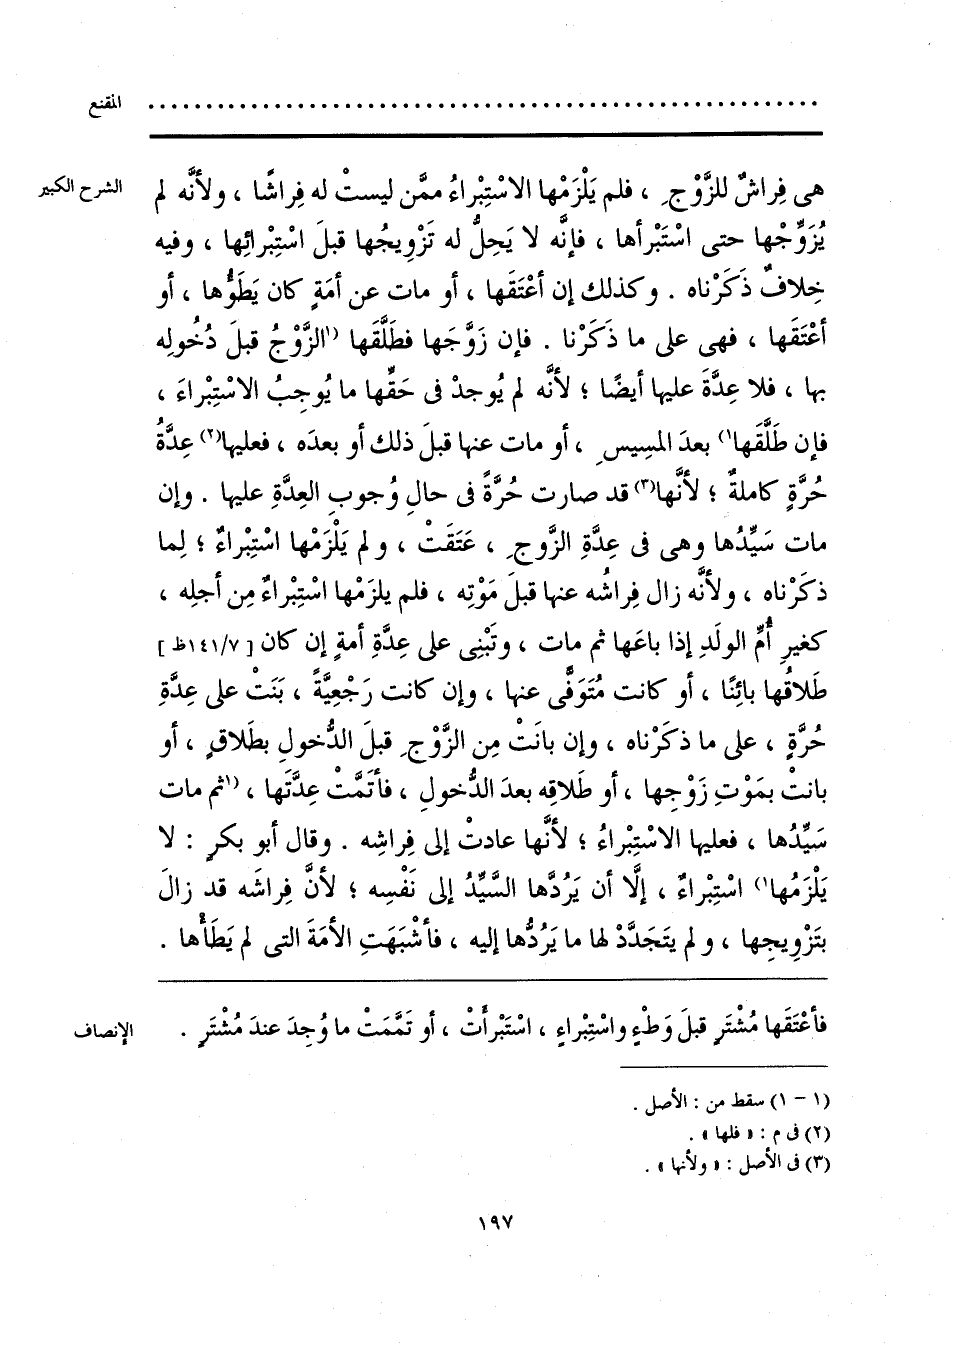 المقنع ..........................................................
الشرح الكبير
هى فِراشٌ للزَّوْجِ ، فلم يَلْزَمْها الاسْتِبْراءُ ممَّن ليستْ له فِراشًا ، ولأنَّه لم
يُزَوِّجْها حتى اسْتَبْرأها ، فإنَّه لا يَحِلُّ له تَزْوِيجُها قبلَ اسْتِبْرائِها ، وفيه
خِلافٌ ذَكَرْناه . وكذلك إن أعْتَقَها ، أو مات عن أمَةٍ كان يَطَؤُها ، أو
أعْتَقَها ، فهى على ما ذَكَرْنا . فإن زَوَّجَها فطَلَّقَها (١الزَّوْجُ قبلَ دُخُولِه
بها ، فلا عِدَّةَ عليها أيضًا ؛ لأنَّه لم يُوجدْ فى حَقِّها ما يُوجِبُ الاسْتِبْراءَ ،
فإن طَلَّقَها١) بعدَ المسِيسِ ، أو مات عنها قبلَ ذلك أو بعدَه ، فعليها(٢) عِدَّةُ
حُرَّةٍ كاملةٌ ؛ لأنَّها(٣) قد صارت حُرَّةً فى حالِ وُجوبِ العِدَّةِ عليها . وإن
مات سَيِّدُها وهى فى عِدَّةِ الزَّوجِ ، عَتَقَتْ ، ولم يَلْزَمْها اسْتِبْراءٌ ؛ لِما
ذكَرْناه ، ولأنَّه زال فِراشُه عنها قبلَ مَوْتِه ، فلم يلزَمْها اسْتِبْراءٌ مِن أجلِه ،
كغيرِ أُمِّ الولَدِ إذا باعَها ثم مات ، وتَبْنِى على عِدَّةِ أمةٍ إن كان [ ١٤١/٧ظ ]
طَلاقُها بائِنًا ، أو كانت مُتَوَفًّى عنها ، وإن كانت رَجْعِيَّةً ، بَنَتْ على عِدَّةِ
حُرَّةٍ ، على ما ذكَرْناه ، وإن بانَتْ مِن الزَّوْجِ قبلَ الدُّخولِ بطَلاقٍ ، أو
بانتْ بمَوْتِ زَوْجِها ، أو طَلاقِه بعدَ الدُّخولِ ، فأتَمَّتْ عِدَّتَها ، (١ثم مات
سَيِّدُها ، فعليها الاسْتِبْراءُ ؛ لأنَّها عادتْ إلى فِراشِه . وقال أبو بكرٍ : لا
يَلْزَمُها١) اسْتِبْراءٌ ، إلَّا أن يَرُدَّها السَّيِّدُ إلى نَفْسِه ؛ لأنَّ فِراشَه قد زالَ
بتَزْوِيجِها ، ولم يتَجَدَّدْ لها ما يَرُدُّها إليه ، فأشْبَهَتِ الأمَةَ التى لم يَطَأْها .
الإنصاف
فأعْتَقَها مُشْتَرٍ قبلَ وَطْءٍ واسْتِبْراءٍ ، اسْتَبْرأَتْ ، أو تَمَّمَتْ ما وُجِدَ عندَ مُشْتَرٍ .
(١ - ١) سقط من : الأصل .
(٢) فى م : « فلها » .
(٣) فى الأصل : « ولأنها » .
١٩٧